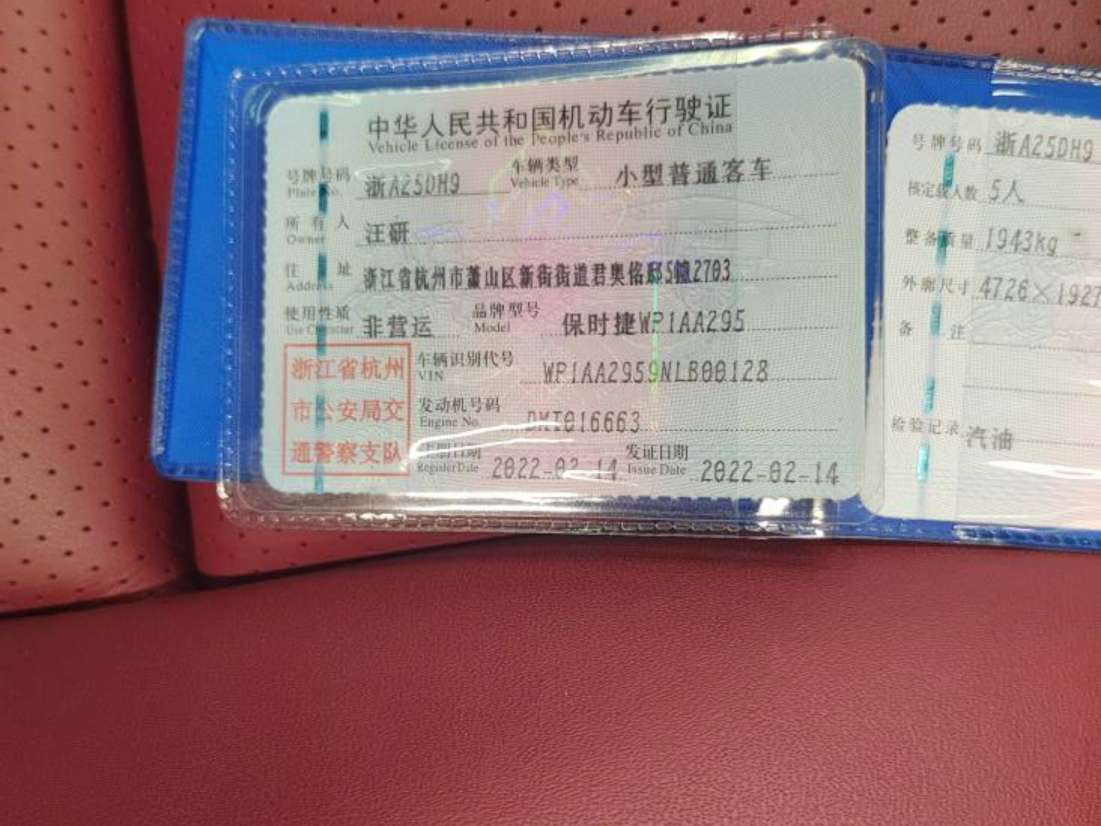 中华人民共和国机动车行驶证
Vehicle License of the People's Republic of China
号牌号码 浙A25DH9 车辆类型 小型普通客车
Plate No. Vehicle Type
所有人 汪研
Owner
住址 浙江省杭州市萧山区新街街道君奥 邸5幢2703
Address
使用性质 非营运 品牌型号 保时捷WP1AA295
Use Character Model
浙江省杭州
市公安局交
通警察支队
车辆识别代号 WP1AA2959NLB00128
VIN
发动机号码
Engine No. 016663
注册日期 2022-02-14 发证日期 2022-02-14
Register Date Issue Date
号牌号码 浙A25DH9
核定载人数 5人
整备质量 1943kg
外廓尺寸 4726×1927
备注
检验记录 汽油